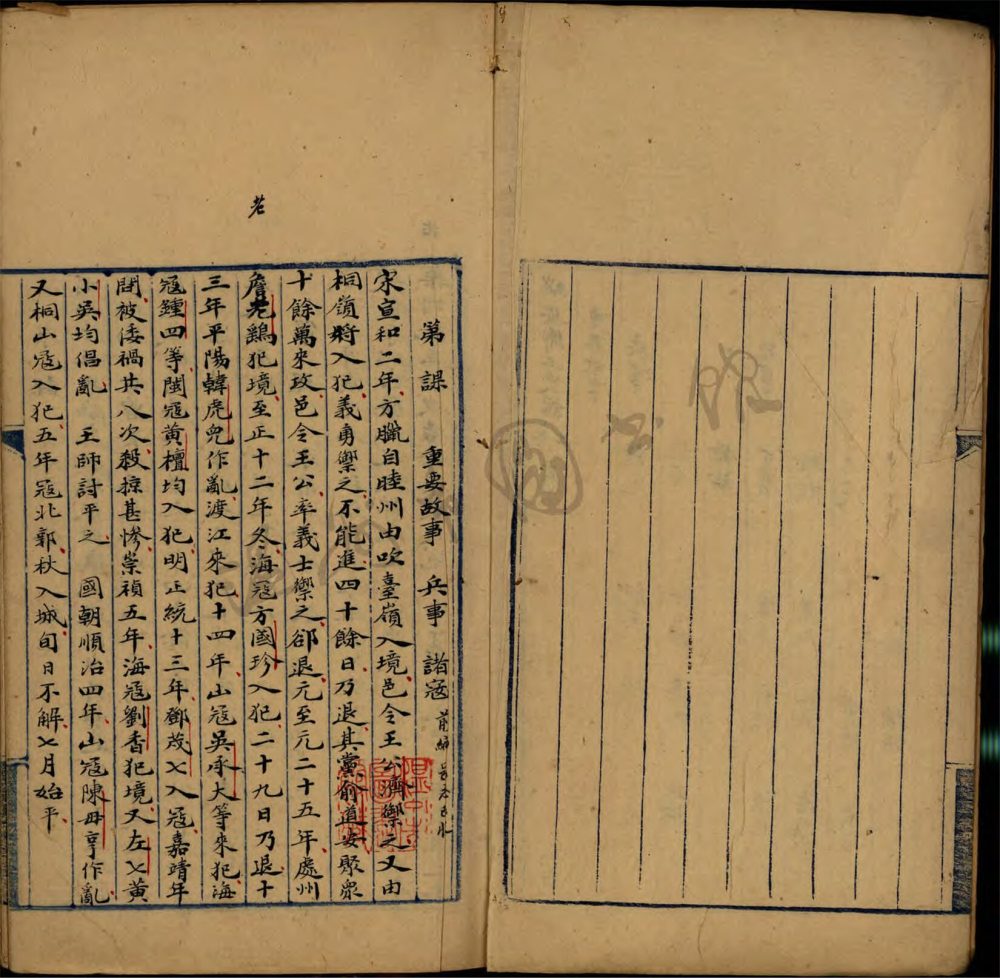 第 課 重要故事 兵事 諸寇
宋宣和二年方臘自睦州由吹臺嶺入境邑令王公濟禦之又由
桐嶺將入犯義勇禦之不能進四十餘日乃退其黨俞道安聚眾
十餘萬來攻邑令王公率義士禦之卻退元至元二十五年處州
詹老鷂犯境至正十二年冬海寇方國珍入犯二十九日乃退十
三年平陽韓虎兒作亂渡江來犯十四年山寇吳承大等來犯海
寇鍾四等閩寇黃檀均入犯明正統十三年鄧茂七入寇嘉靖年
間被倭禍共八次殺掠甚慘崇禎五年海寇劉香犯境又左七黃
小吳均倡亂 王師討平之 國朝順治四年山寇陳毋亨作亂
又桐山寇入犯五年寇北郭秋入城旬日不解七月始平
老